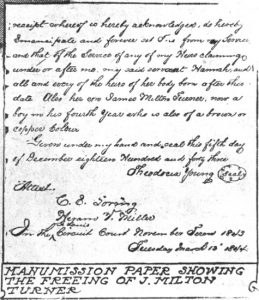 receipt whereof is hereby acknowledged, do hereby
Emancipate and forever set free from my Service
and that of the Service of any of my Heirs claiming
under or after me, my said servant Hannah, and
all and every of the heirs of her body born after this
date Also her son James Milton Turner, now a
boy in his Fourth Year who is also of a brown or
copper Colour
Given under my hand and seal this fifth day
of December eighteen Hundred and forty three
Theodosia Young Seal
Attest
C. E.
V. Miller
In the St Louis Circuit Court November Term 1843
Tuesday March 12th 1844
MANUMISSION PAPER SHOWING
THE FREEING OF J. MILTON
TURNER